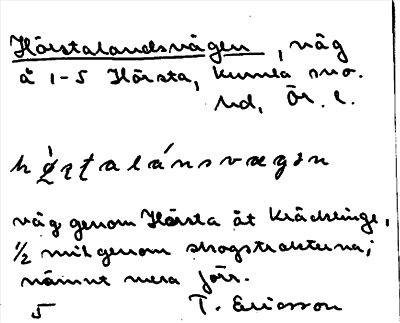 Hörstalandsvägen, väg
å 1-5 Hörsta, Kumla sn o.
hd, Ör. l.
väg genom Hörsta åt Kräcklinge,
1/2 mil genom skogstrakterna;
nämnt mera förr.
5 T. Ericsson